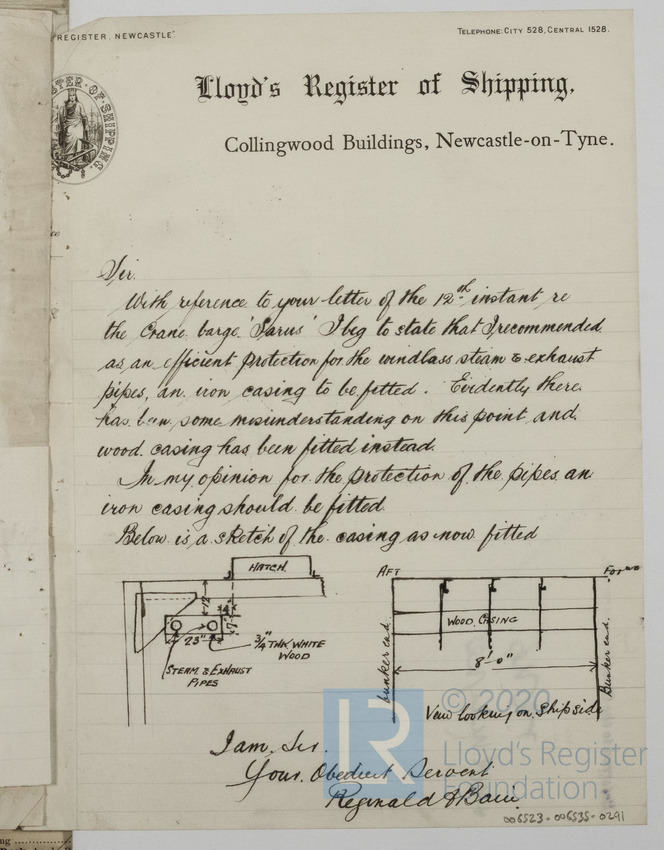 REGISTER, NEWCASTLE"
TELEPHONE: CITY 528, CENTRAL 1528.
Lloyd's Register of Shipping,
Collingwood Buildings, Newcastle-on-Tyne.
Sir.
With reference to your letter of the 12th instant re
the crane barge 'Sarus' I beg to state that I recommended
as an efficient protection for the windlass steam & exhaust
pipes, an iron casing to be fitted. Evidently there
has been some misunderstanding on this point and
wood casing has been fitted instead.
In my opinion for the protection of the pipes an
iron casing should be fitted
Below is a sketch of the casing as now fitted
HATCH
12"
7"
23"
3/4" THK WHITE
WOOD
STEAM & EXHAUST
PIPES
AFT
FOR'WD
WOOD CASING
8'-0"
bunker end.
Bunker end.
View looking on Ship side
I am, Sir.
Your Obedient Servant
Reginald
© 2020
LR
Lloyd's Register
Foundation
006523-006535-0291